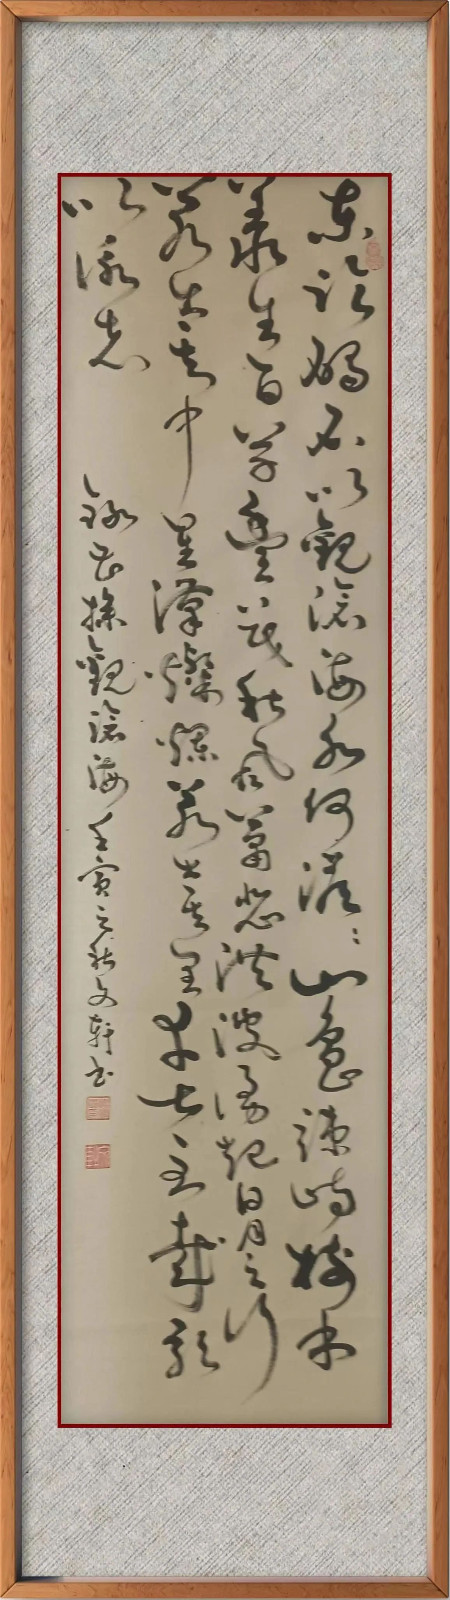 東臨碣石以觀滄海水何澹々山島竦峙樹木
叢生百草豐茂秋風蕭瑟洪波湧起日月之行
若出其中星漢燦爛若出其里幸甚至哉歌
以詠志 錄曹操觀滄海 壬寅之秋文軒書